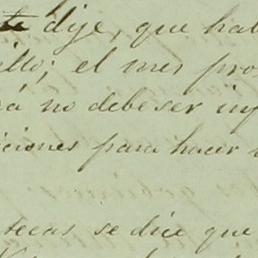 te dije, que hab
illo; el mes pro
rá no debe ser inf
iciones para hacer
tecas se dice que